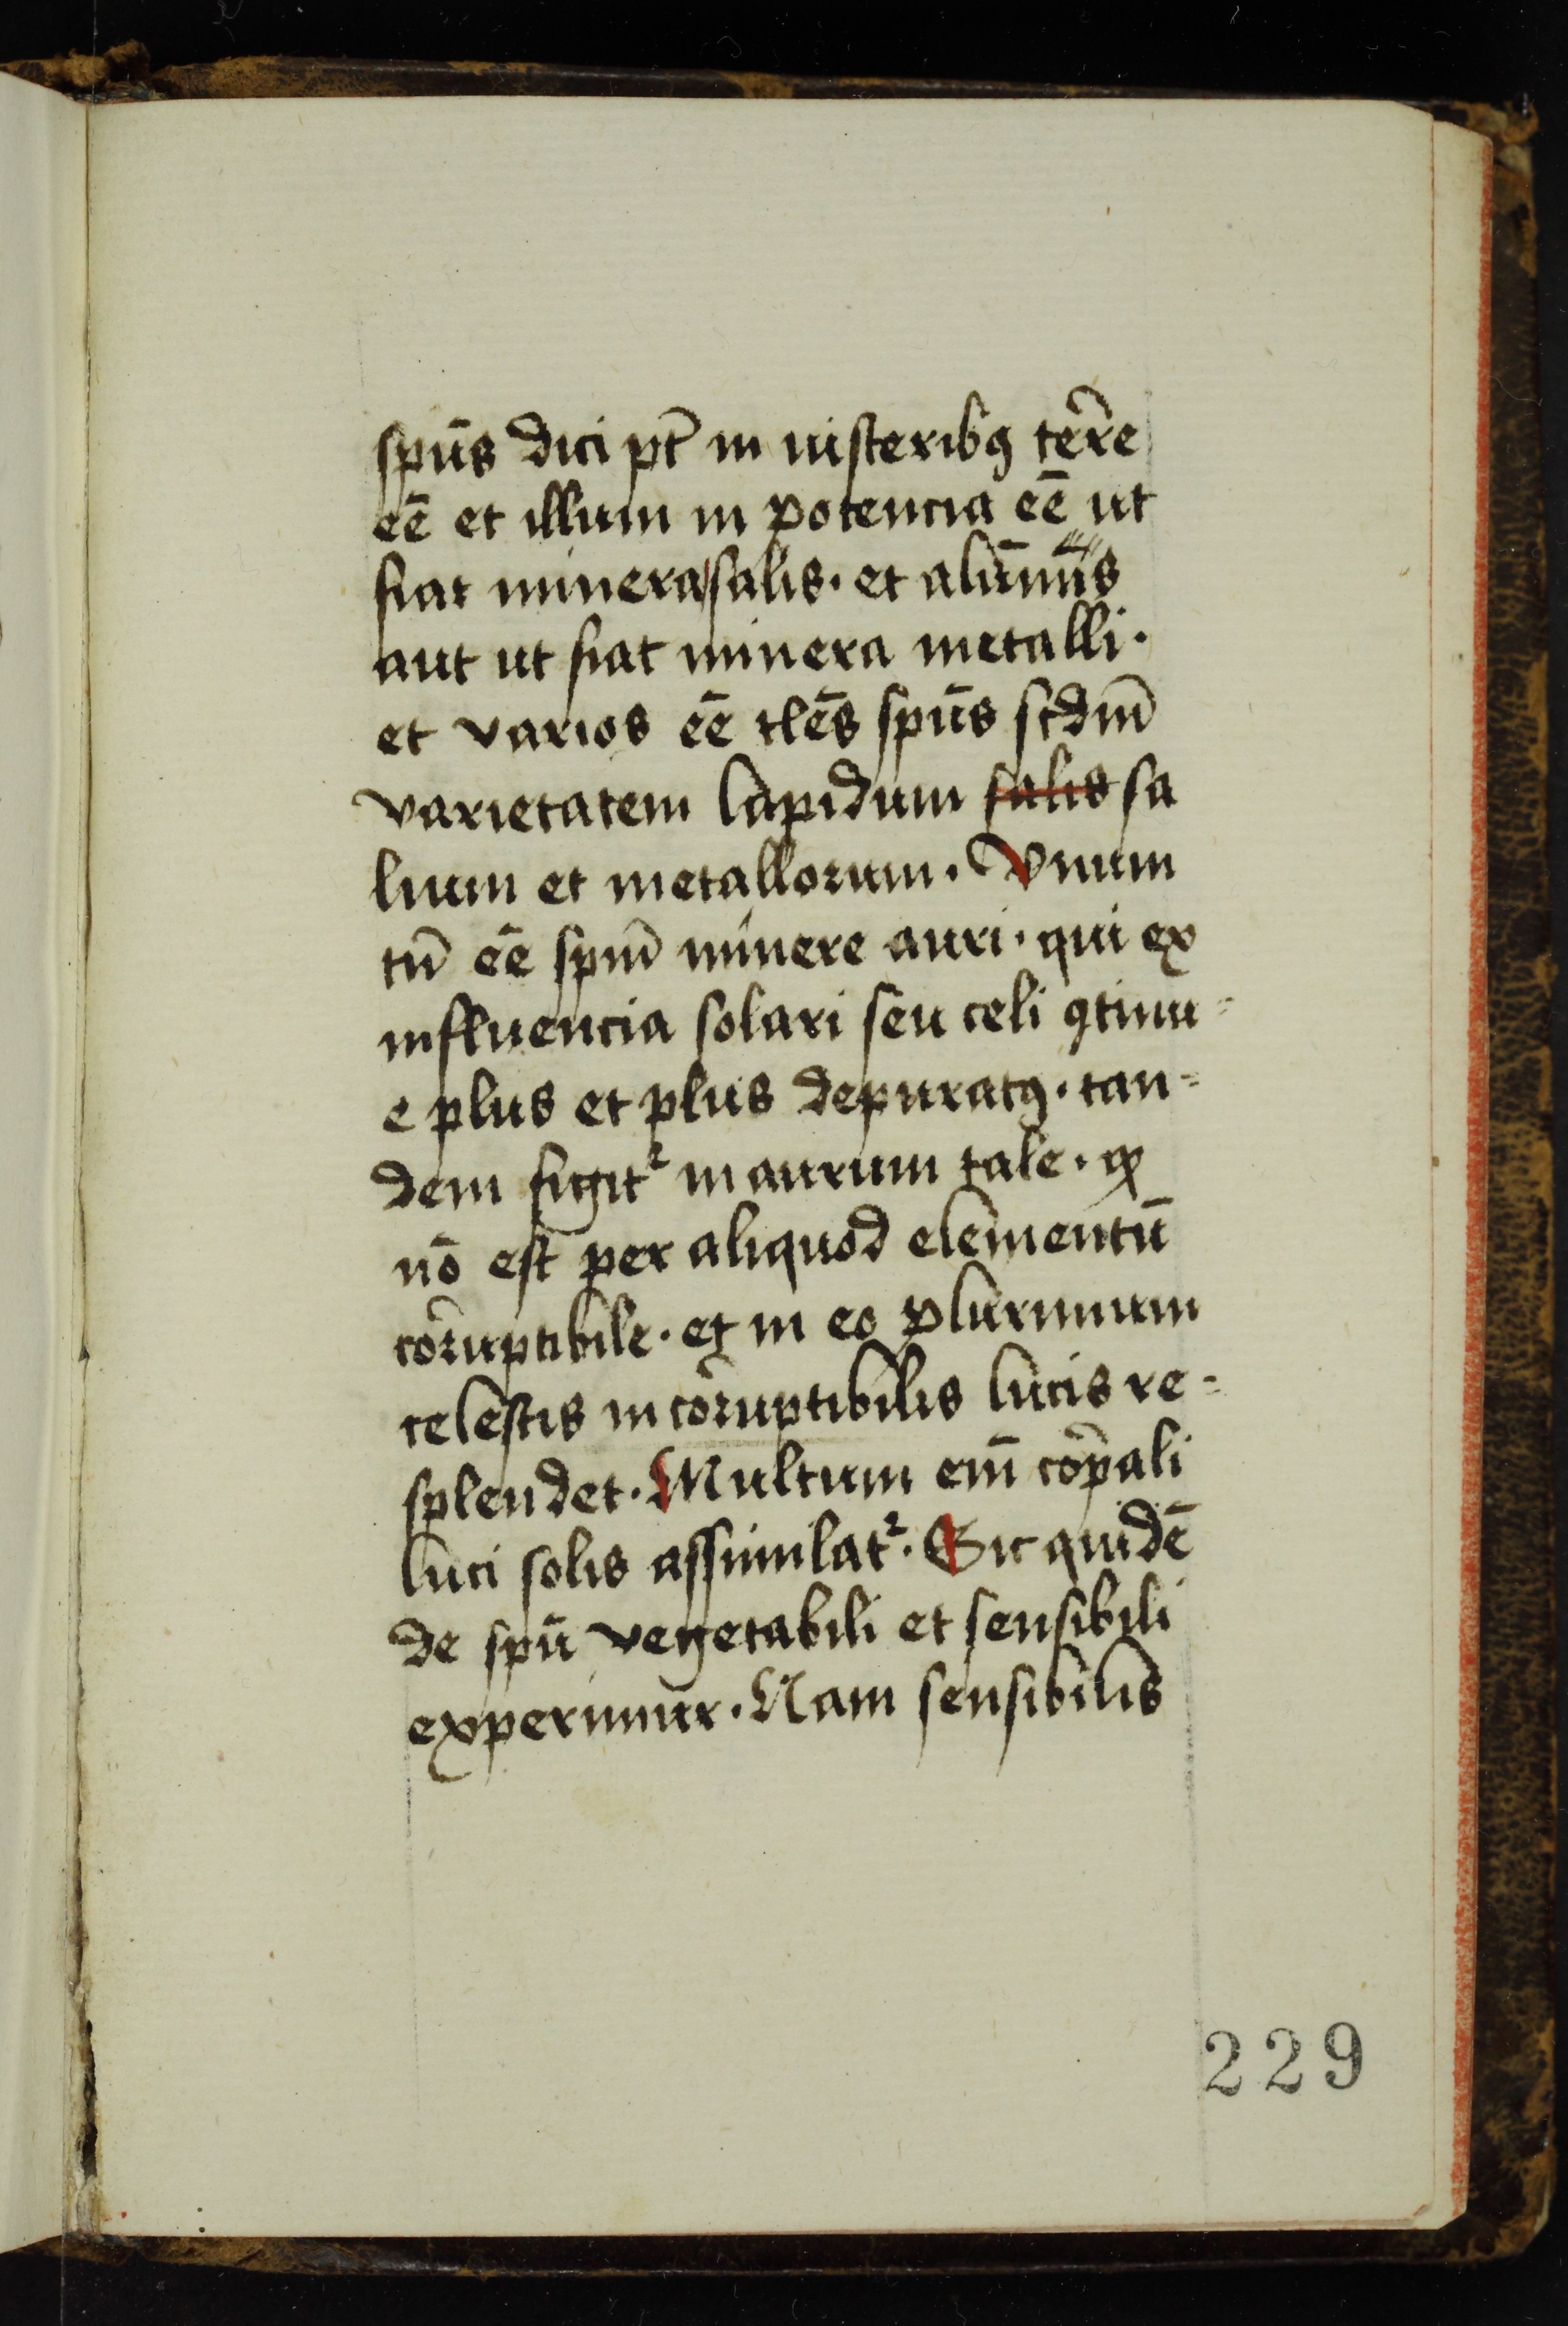 spūs dici pt̄ in uisceribꝯ terre
eē et illum in potencia eē ut
fiat minera salis. et alūmīs
aut ut fiat minera metalli.
et varios eē tlēs spūs scdm̄
varietatem lapidum salis sa
lium et metallorum. Vnum
tn̄ eē spm̄ minere auri. qui ex
influencia solari seu celi ꝯtinu=
e plus et plus depuratꝯ. tan=
dem figit᷑ in aurum tale. ꝙ
nō est per aliquod elementū
coꝛ̄uptibile. et in eo plurimum
celestis incoꝛ̄uptibilis lucis re=
splendet. Multum em̄ coꝛꝑali
luci solis assimilat᷑. Sic quidē
de spū vegetabili et sensibili
experimur. Nam sensibilis
229